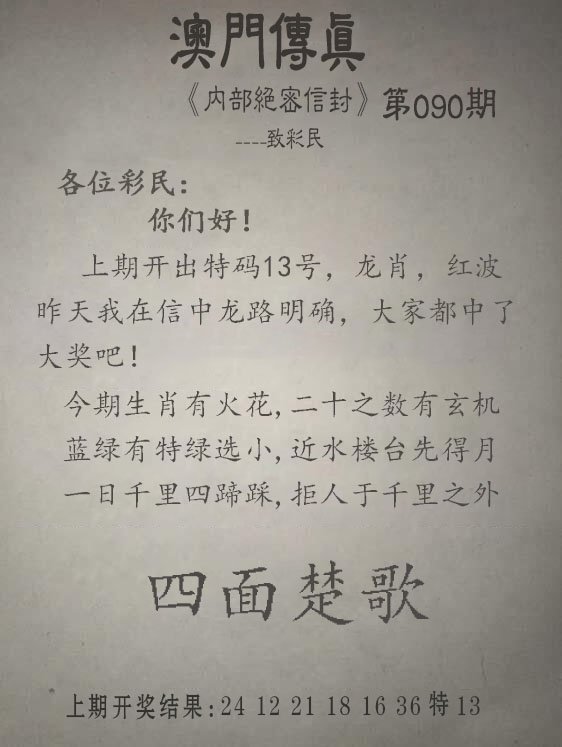 澳門傳眞
《内部絕密信封》第090期
----致彩民
各位彩民：
你们好！
上期开出特码13号，龙肖，红波
昨天我在信中龙路明确，大家都中了
大奖吧！
今期生肖有火花,二十之数有玄机
蓝绿有特绿选小,近水楼台先得月
一日千里四蹄踩,拒人于千里之外
四面楚歌
上期开奖结果:24 12 21 18 16 36 特 13